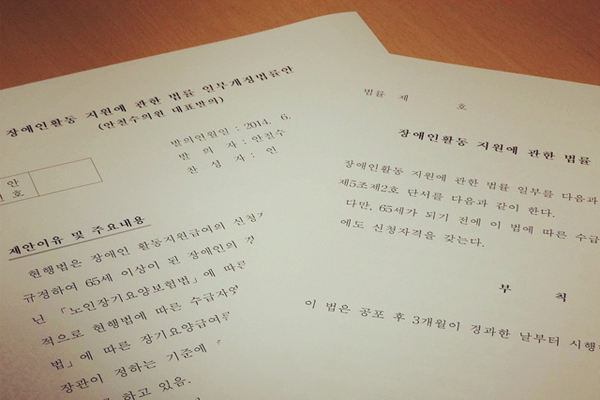 장애인활동 지원에 관한 법률 일부개정법률안
(안철수의원 대표발의)
안
호
발의연월일 : 2014. 6.
발 의 자 : 안철수
찬 성 자 : 인
제안이유 및 주요내용
현행법은 장애인 활동지원급여의 신청
규정하여 65세 이상이 된 장애인의 경
닌 「노인장기요양보험법」에 따른
적으로 현행법에 따른 수급자
법」에 따른 장기요양급여
장관이 정하는 기준에
하고 있음.
법률 제 호
장애인활동 지원에 관한 법률
장애인활동 지원에 관한 법률 일부를 다음과
제5조제2호 단서를 다음과 같이 한다.
다만, 65세가 되기 전에 이 법에 따른 수급
에도 신청자격을 갖는다.
부 칙
이 법은 공포 후 3개월이 경과한 날부터 시행